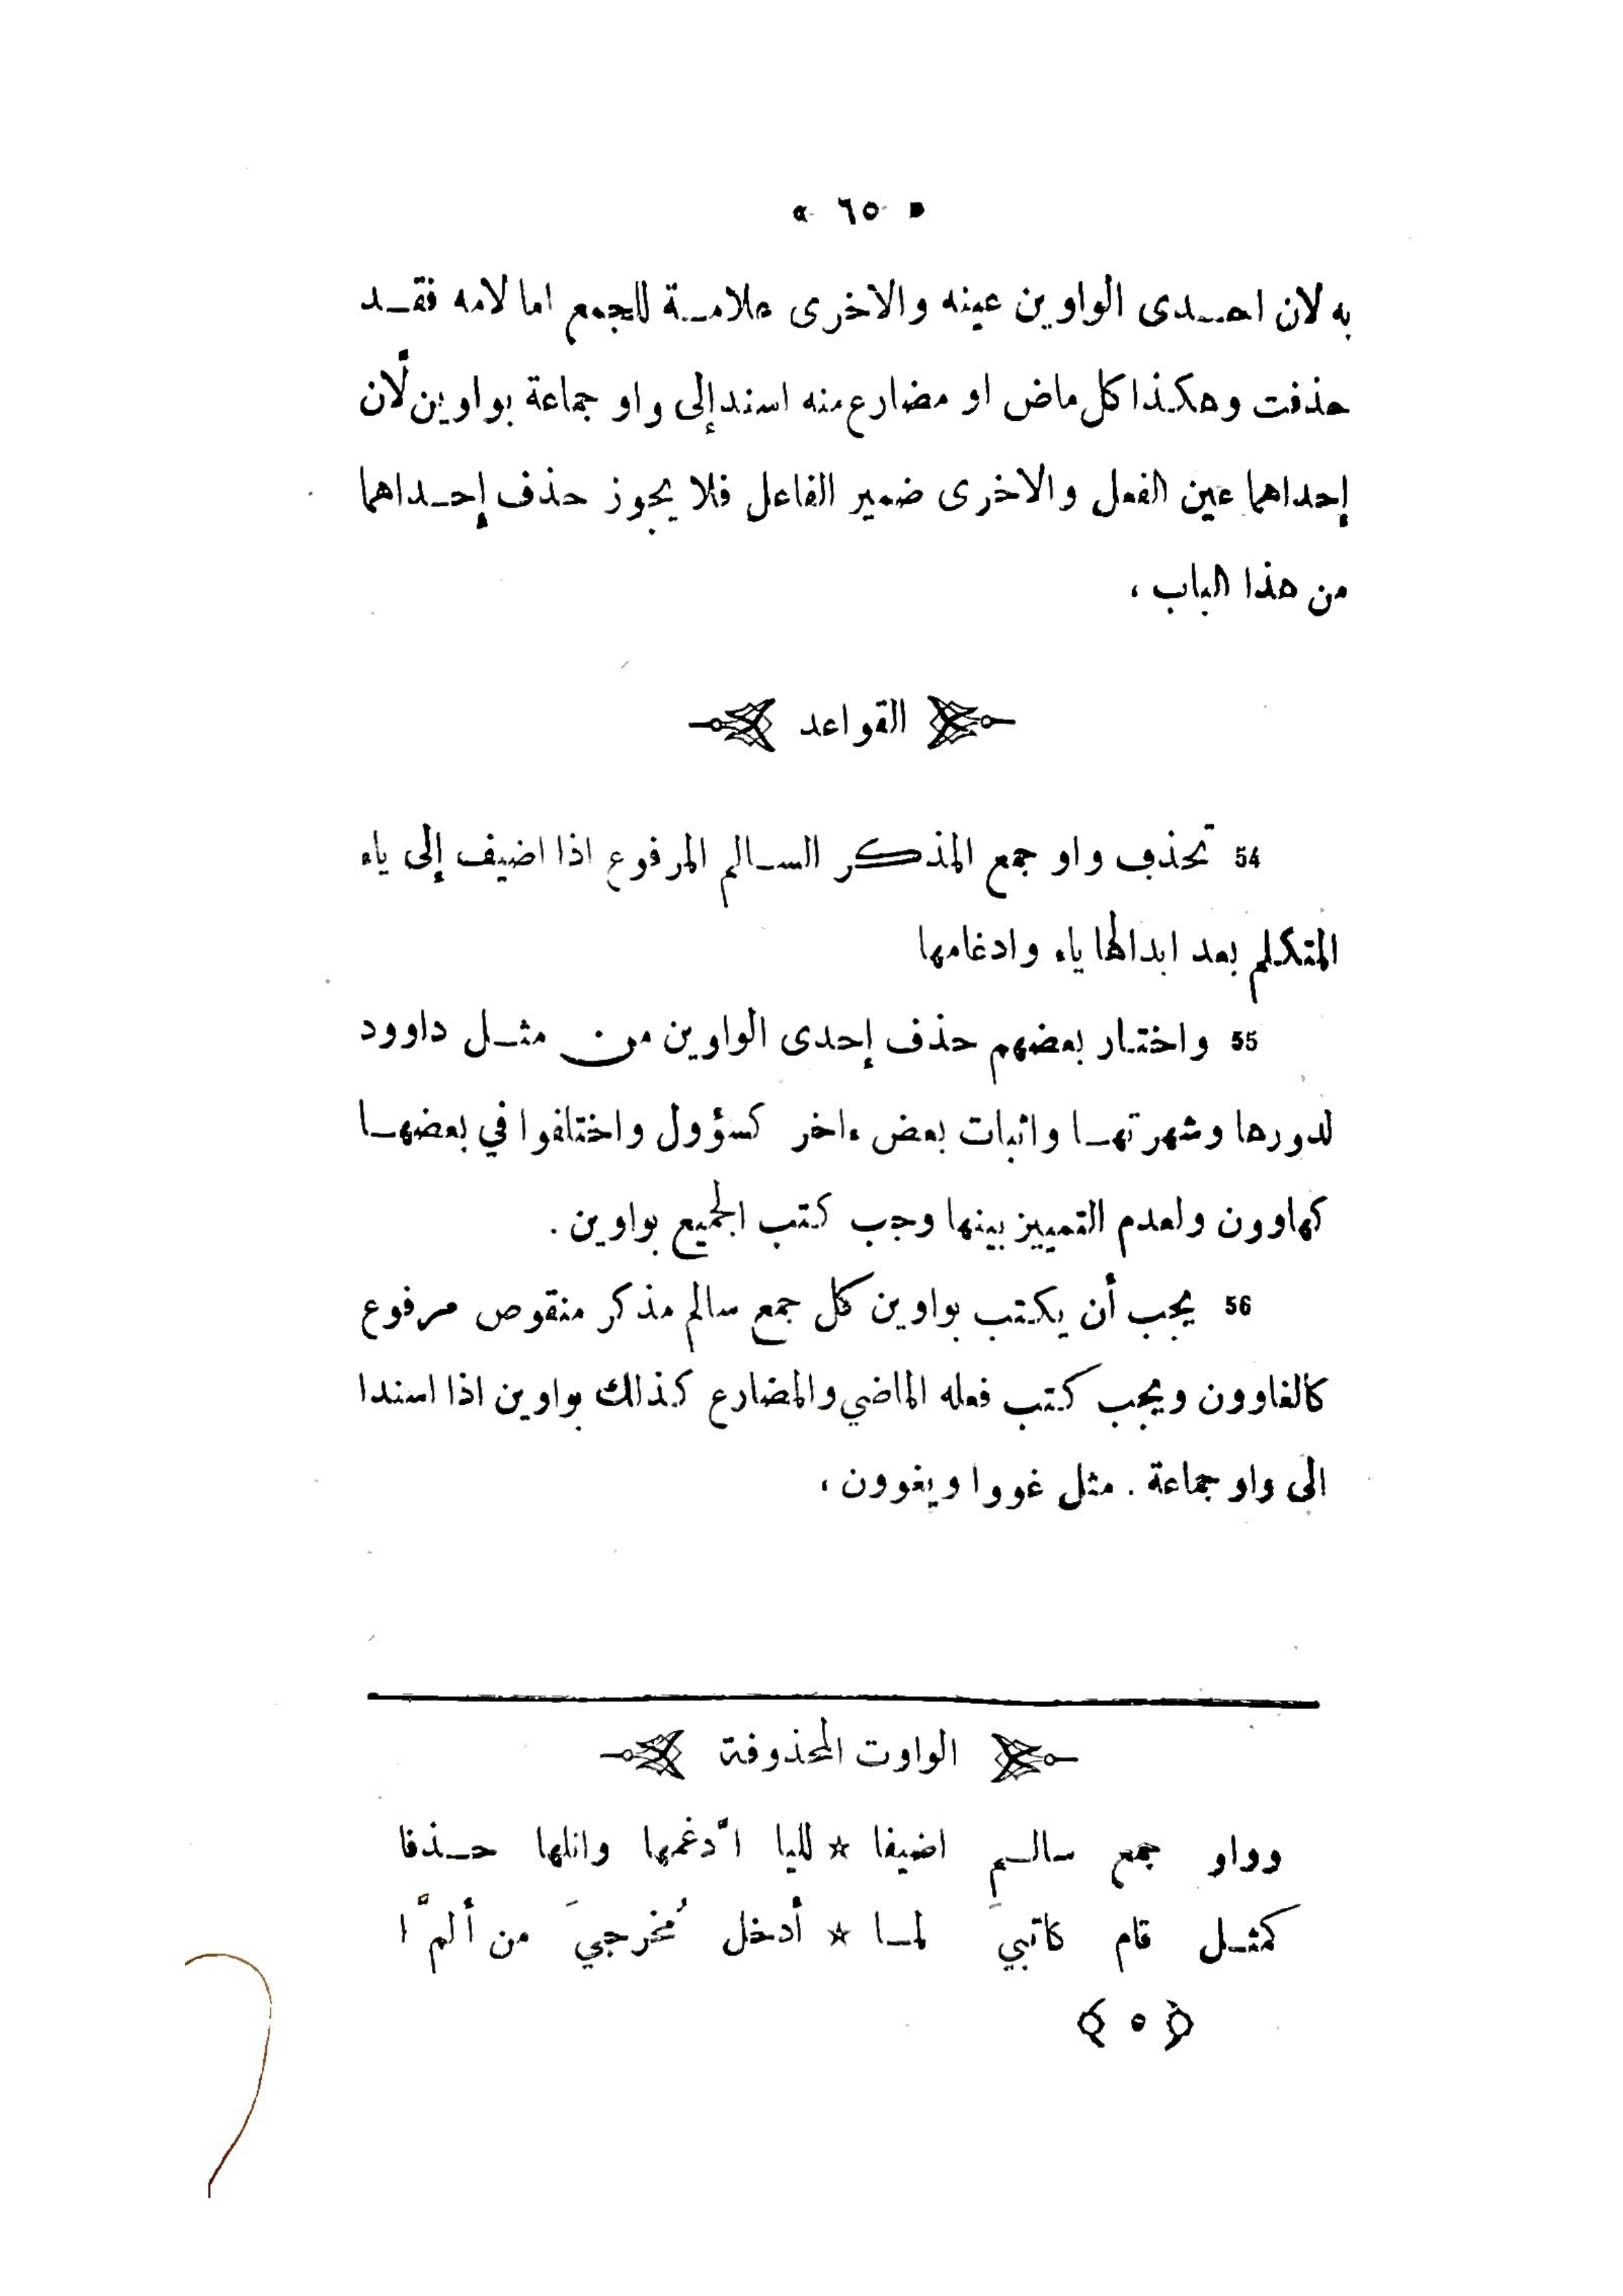 « ٦٥ »
به لان احدى الواوين عينه والاخرى علامة للجمع اما لامه فقد
حذفت وهكذا كل ماض او مضارع منه اسند إلى واو جماعة بواوين لأن
إحداهما عين الفعل والاخرى ضمير الفاعل فلا يجوز حذف إحداهما
من هذا الباب ،
القواعد
54 تحذف واو جمع المذكر السالم المرفوع اذا اضيف إلى ياء
المتكلم بعد ابدالها ياء وادغامها
55 واختار بعضهم حذف إحدى الواوين من مثل داوود
لدورها وشهرتها واثبات بعض ءاخر كسؤول واختلفوا في بعضها
كهاوون ولعدم التمييز بينها وجب كتب الجميع بواوين .
56 يجب أن يكتب بواوين كل جمع سالم مذكر منقوص مرفوع
كالغاوون ويجب كتب فعله الماضي والمضارع كذلك بواوين اذا اسندا
الى واو جماعة . مثل غووا ويغوون ،
الواوت المحذوفة
وواو جمع سالمٍ اضيفا ☆ لليا ادَّغمها وانلها حذفا
كمثل قام كاتبيَ لما ☆ أدخل مُخرجيَ من ألمَّا
﴿ ٥ ﴾